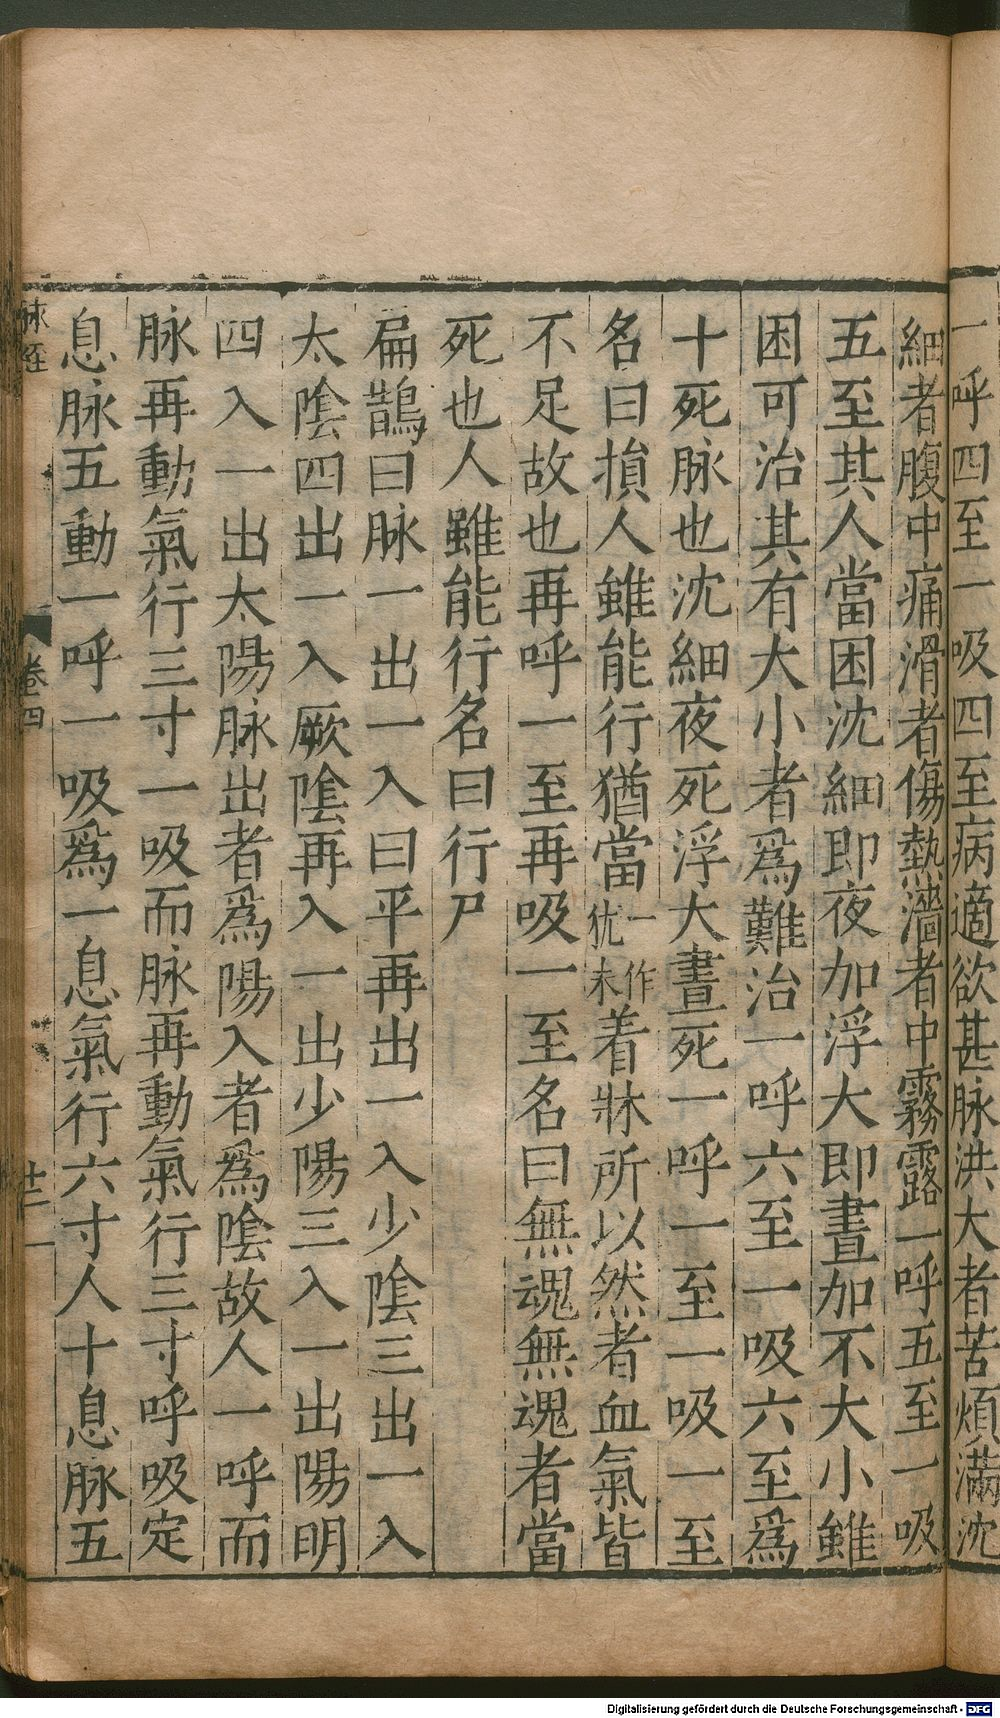 一呼四至一吸四至病適欲甚脉洪大者苦煩滿沈
細者腹中痛滑者傷熱濇者中霧露一呼五至一吸
五至其人當困沈細即夜加浮大即晝加不大小雖
困可治其有大小者爲難治一呼六至一吸六至爲
十死脉也沈細夜死浮大晝死一呼一至一吸一至
名曰損人雖能行猶當一作犹未着牀所以然者血氣皆
不足故也再呼一至再吸一至名曰無魂無魂者當
死也人雖能行名曰行尸
扁鵲曰脉一出一入曰平再出一入少隂三出一入
太隂四出一入厥隂再入一出少陽三入一出陽明
四入一出太陽脉出者爲陽入者爲隂故人一呼而
脉再動氣行三寸一吸而脉再動氣行三寸呼吸定
息脉五動一呼一吸爲一息氣行六寸人十息脉五
脉經
卷四
十二
Digitalisierung gefördert durch die Deutsche Forschungsgemeinschaft - DFG